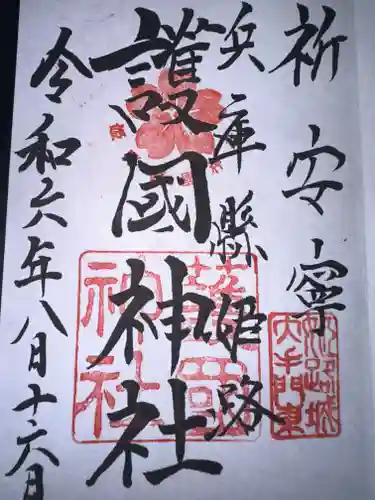 祈安寧
兵庫縣姫路
護國神社
令和六年八月十六日
護國神社
姫路城大手門東